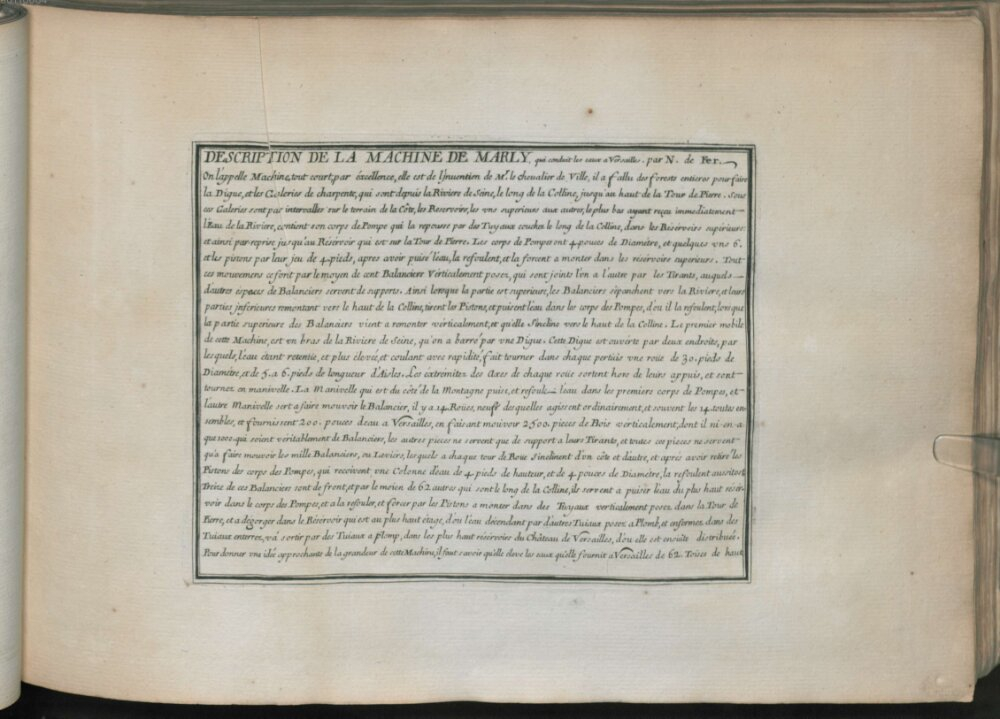 DESCRIPTION DE LA MACHINE DE MARLY, qui conduit les eaux a Versailles. par N. de Fer.
On l'appelle Machine, tout court, par éxcellence, elle est de l'jnvention de Mr. le chevalier de Ville, il a fallu des forests entieres pour faire
la Digue, et les Galeries de charpente, qui sont depuis la Riviere de Seine, le long de la Colline, jusqu'au haut de la Tour de Pierre. Sous
ces Galeries sont par intervalles sur le terrain de la Côte, les Reservoirs, les vns superieurs aux autres, le plus bas ayant reçu immediatement
l'Eau de la Riviere, contient son corps de Pompe qui la repousse par des Tuyaux couchez le long de la Colline, dans les Reservoirs superieurs
et ainsi par reprise jusqu'au Réservoir qui est sur la Tour de Pierre. Les corps de Pompe ont 4 pouces de Diametre, et quelques vns 6.
et les pistons par leur jeu de 4 pieds, apres avoir puisé l'eau, la refoulent, et la forcent a monter dans les réservoirs superieurs. Tout
ces mouvemens ce font par le moyen de cent Balanciers Vèrticalement posez, qui sont joints l'on a l'autre par les Tirants, auquels
d'autres espaces de Balanciers servent de supports. Ainsi lorsque la partie est superieure, les Balanciers s'épanchent vers la Riviere, et leurs
parties jnferieures remontant vers le haut de la Colline, tirent les Pistons, et puisent l'eau dans les corps des Pompes, d'ou il la refoulent, lorsque
la partie superieure des Balanciers vient a remonter vèrticalement, et qu'elle S'incline vers le haut de la Colline. Le premier mobile
de cette Machine, est vn bras de la Riviere de Seine, qu'on a barré par vne Digue. Cette Digue est ouverte par deux endroits, par
lesquels, l'eau étant retenüe, et plus élevée, et coulant avec rapidité, fait tourner dans chaque pertuis vne roüe de 30. pieds de
Diametre, et de 5. a 6. pieds de longueur d'Aisles. Les éxtrémitez des Axes de chaque roüe sortent hors de leurs appuis, et sont
tournez en manivelle. La Manivelle qui est du côté de la Montagne puise, et refoule l'eau dans les premiers corps de Pompes, et
l'autre Manivelle sert a faire mouvoir le Balancier, il y a 14 Roües, neuf desquelles agissent ordinairement, et souvent les 14. toutes en-
sembles, et fournissent 200. pouces d'eau a Versailles, en faisant moüvoir 2500. pieces de Bois verticalement, dont il ni-en-a
que 1000 qui soient veritablement de Balanciers, les autres pieces ne servent que de support a leurs Tirants, et toutes ces pieces ne servent
qu'a faire mouvoir les mille Balanciers, ou Leviers, lesquels a chaque tour de Roüe s'inclinent d'vn côté et d'autre, et aprés avoir retiré les
Pistons des corps des Pompes, qui recoivent vne Colonne d'eau de 4 pieds de hauteur, et de 4 pouces de Diametre, la refoulent aussitost
Treize de ces Balanciers sont de front, et par le moien de 62 autres qui sont le long de la Colline, ils servent a puiser l'eau du plus haut reser-
voir dans le corps des Pompes, et a la refouler, et forcer par les Pistons a monter dans des Tuyaux verticalement posez dans la Tour de
Pierre, et a dégorger dans le Réservoir qui est au plus haut étage, d'ou l'eau décendant par d'autres Tuiaux posez a Plomb, et enfermez dans des
Tuiaux enterrez, va sortir par des Tuiaux a plomp, dans les plus haut réservoirs du Château de Versailles, d'ou elle est ensuite distribuée.
Pour donner vne idée approchante de la grandeur de cette Machine, il faut savoir qu'elle éleve les eaux qu'elle fournit a Versailles de 62. Toises de haut